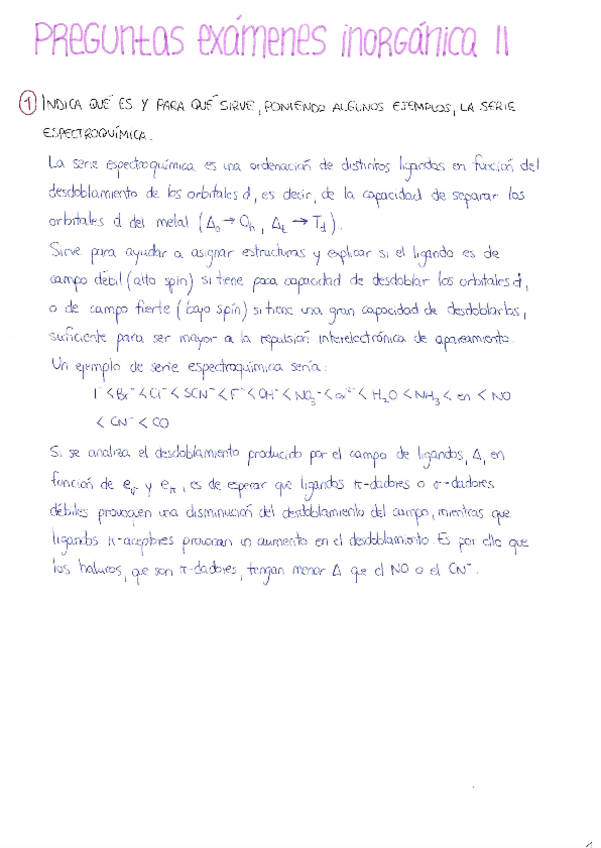 PREGUNTAS EXÁMENES INORGÁNICA II
① INDICA QUÉ ES Y PARA QUÉ SIRVE, PONIENDO ALGUNOS EJEMPLOS, LA SERIE
ESPECTROQUÍMICA.
La serie espectroquímica es una ordenación de distintos ligandos en función del
desdoblamiento de los orbitales d, es decir, de la capacidad de separar los
orbitales d del metal (Δo → Oh, Δt → Td).
Sirve para ayudar a asignar estructuras y explicar si el ligando es de
campo débil (alto spin) si tiene poca capacidad de desdoblar los orbitales d,
o de campo fuerte (bajo spin) si tiene una gran capacidad de desdoblarlos,
suficiente para ser mayor a la repulsión interelectrónica de apareamiento.
Un ejemplo de serie espectroquímica sería:
I⁻ < Br⁻ < Cl⁻ < SCN⁻ < F⁻ < OH⁻ < NO₃⁻ < ox²⁻ < H₂O < NH₃ < en < NO
< CN⁻ < CO
Si se analiza el desdoblamiento producido por el campo de ligandos, Δ, en
función de eσ y eπ, es de esperar que ligandos π-dadores o σ-dadores
débiles provoquen una disminución del desdoblamiento del campo, mientras que
ligandos π-aceptores provocan un aumento en el desdoblamiento. Es por ello que
los haluros, que son π-dadores, tengan menor Δ que el NO o el CN⁻.